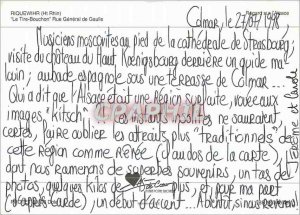 RIQUEWIHR (Ht Rhin)
"Le Tire-Bouchon" Rue Général de Gaulle
Regard sur l'Alsace
Colmar, le 27/07/1998
Musiciens moscovites au pied de la cathédrale de Strasbourg,
visite du château du Haut Koenigsbourg derrière un guide ma-
louin, aubade espagnole sous une terrasse de Colmar...
Qui a dit que l'Alsace était une Région souffrante, vouée aux
images "kitsch"? Les instants insolites ne sauraient,
certes, faire oublier les attraits plus "traditionnels" de
cette région comme Renée (cf au dos de la carte),
dont nous ramenons de superbes souvenirs, un tas de
photos, quelques kilos de plus, et pour ma part
(d'après Carole), un début d'accent... A bientôt, nous revenons
Etienne et Carole